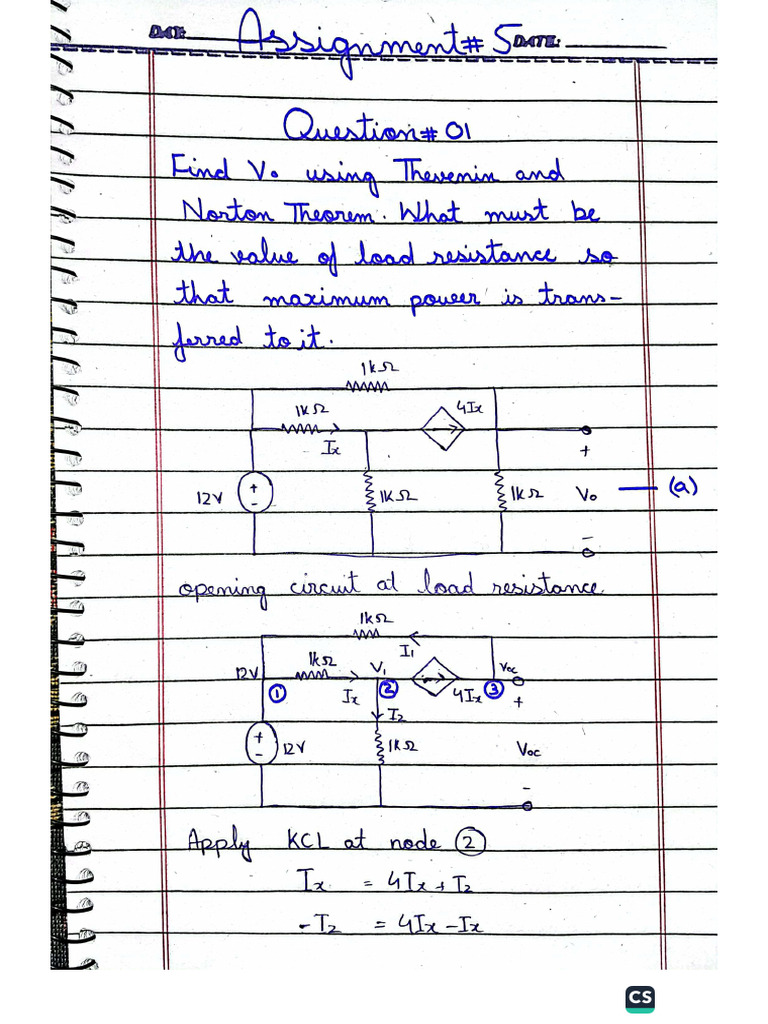 DATE: Assignment# 5 DATE:
Question# 01
Find Vo using Thevenin and
Norton Theorem. What must be
the value of load resistance so
that maximum power is trans-
ferred to it.
1kΩ
1kΩ
4Ix
Ix
12V
+
-
1kΩ
1kΩ
+
Vo
-
(a)
opening circuit at load resistance.
1kΩ
I1
12V
1kΩ
V1
Voc
①
Ix
②
4Ix
③
+
I2
+
-
12V
1kΩ
Voc
-
Apply KCL at node ②
Ix = 4Ix + I2
-I2 = 4Ix - Ix
CS